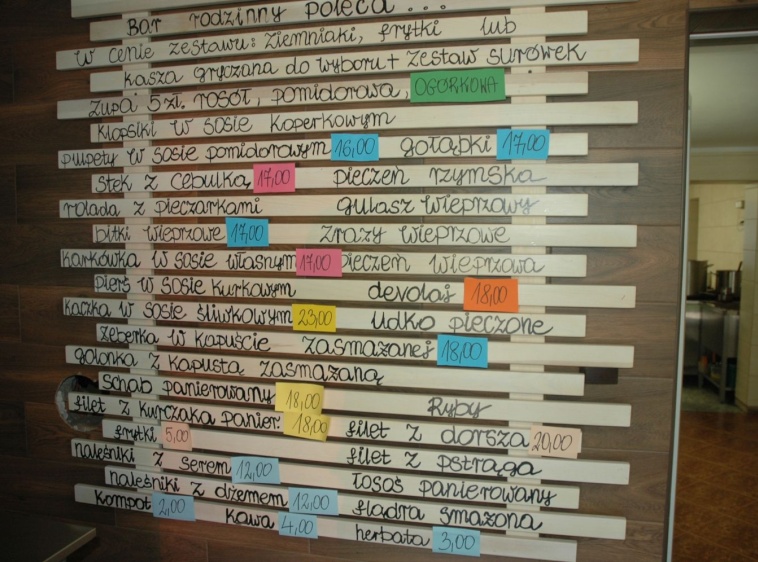 Bar rodzinny poleca ...
w cenie zestawu: ziemniaki, frytki lub
kasza gryczana do wyboru + zestaw surówek
zupa 5 zł. rosół, pomidorowa, OGÓRKOWA
klopsiki w sosie koperkowym
pulpety w sosie pomidorowym 16,00 gołąbki 17,00
stek z cebulką 17,00 pieczeń rzymska
rolada z pieczarkami gulasz wieprzowy
bitki wieprzowe 17,00 zrazy wieprzowe
karkówka w sosie własnym 17,00 pieczeń wieprzowa
pierś w sosie kurkowym devolaj 18,00
kaczka w sosie śliwkowym 23,00 udko pieczone
żeberka w kapuście zasmażanej 18,00
golonka z kapustą zasmażaną
schab panierowany 18,00 Ryby
filet z kurczaka panier. 18,00 filet z dorsza 20,00
frytki 5,00 filet z pstrąga
naleśniki z serem 12,00 łosoś panierowany
naleśniki z dżemem 12,00 flądra smażona
kompot 2,00 kawa 4,00 herbata 3,00